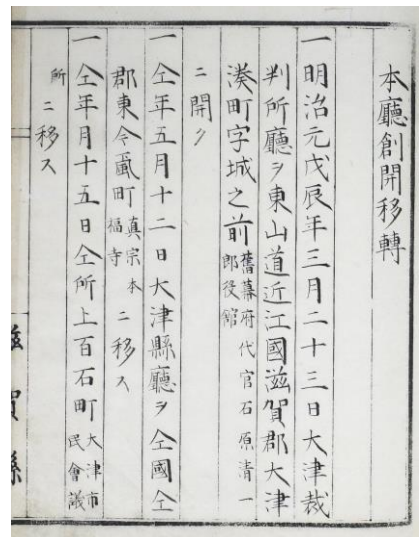 本廳創開移轉
一明治元戊辰年三月二十三日大津裁
判所廳ヲ東山道近江國滋賀郡大津
湊町字城之前舊幕府代官石原清一郎役館
ニ開ク
一仝年五月十二日大津縣廳ヲ仝國仝
郡東今颪町真宗本福寺ニ移ス
一仝年月十五日仝所上百石町大津市民會議
所ニ移ス
滋賀縣